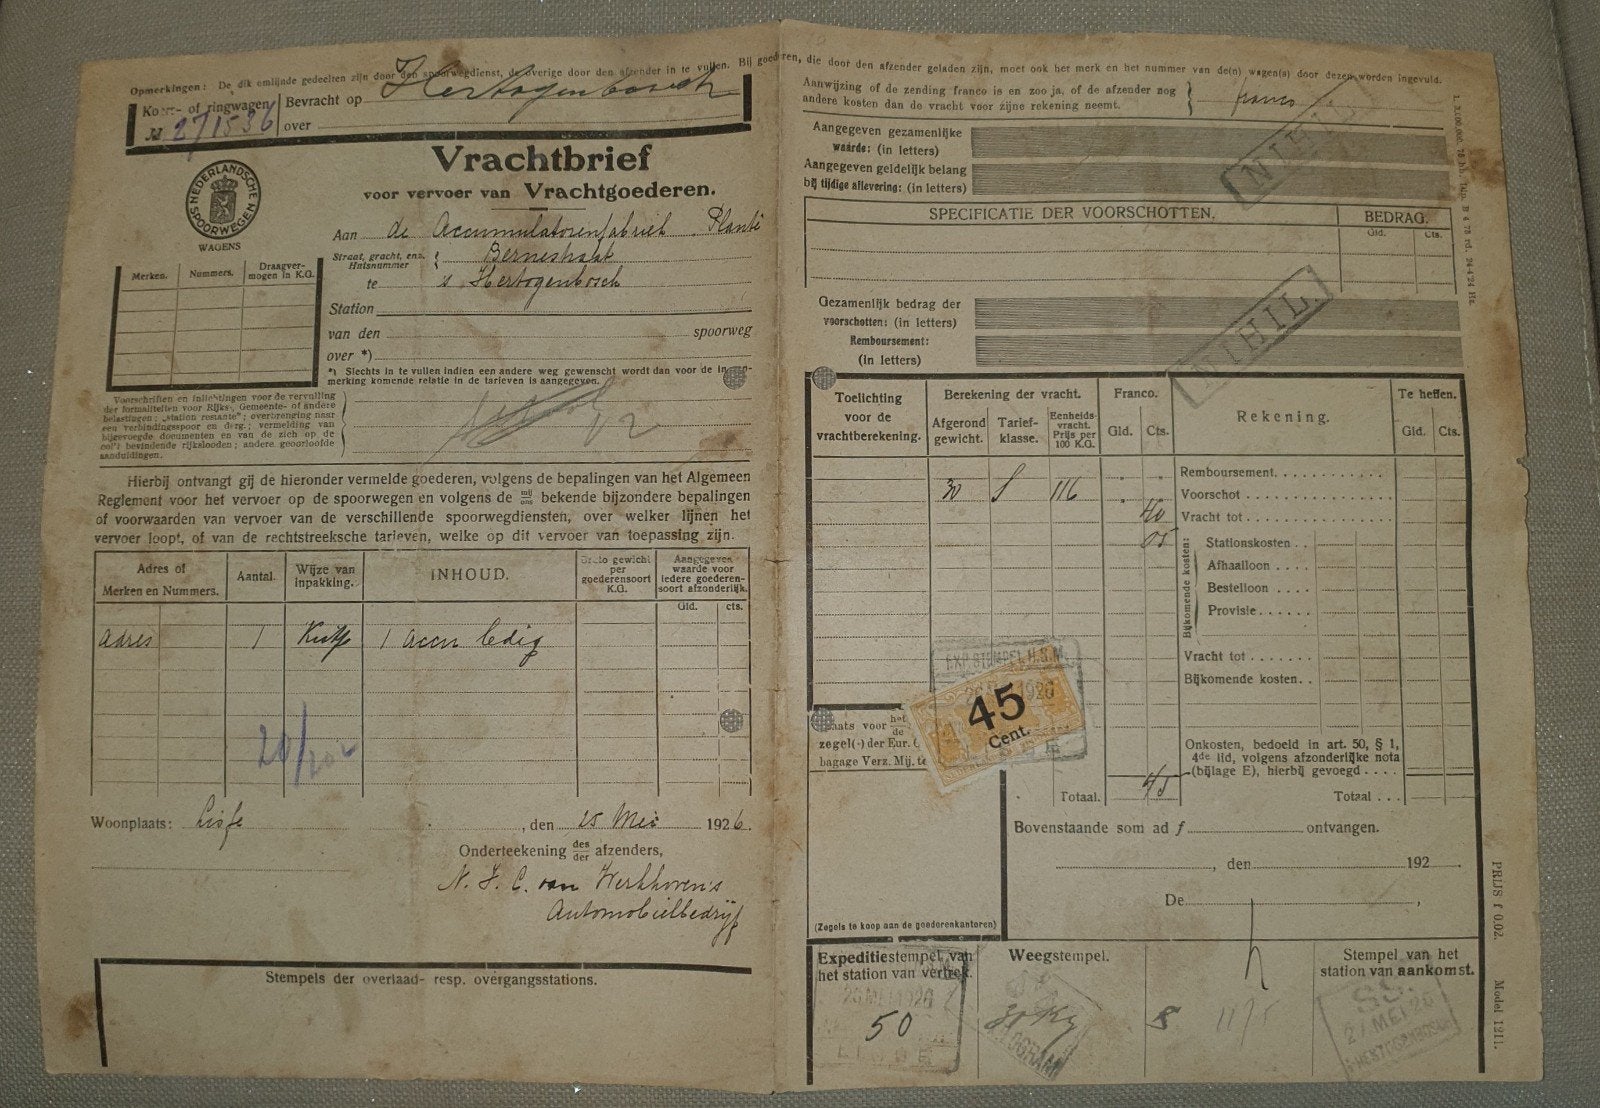 Opmerkingen: De dik omlijnde gedeelten zijn door den spoorwegdienst, de overige door den afzender in te vullen. Bij goederen, die door den afzender geladen zijn, moet ook het merk en het nummer van de(n) wagen(s) door dezen worden ingevuld.
Korf- of ringwagen
№ 271536
Bevracht op Hertogenbosch
over
Vrachtbrief
voor vervoer van Vrachtgoederen.
NEDERLANDSCHE SPOORWEGEN
WAGENS
Merken. Nummers. Draagver-
mogen in K.G.
Aan de Accumulatorenfabriek Planté
Straat, gracht, enz.
Huisnummer Bernestraat
te 's Hertogenbosch
Station
van den spoorweg
over *)
*) Slechts in te vullen indien een andere weg gewenscht wordt dan voor de in
merking komende relatie in de tarieven is aangegeven.
Voorschriften en inlichtingen voor de vervulling
der formaliteiten voor Rijks-, Gemeente- of andere
belastingen; „station restante"; overbrenging naar
een verbindingsspoor en derg.; vermelding van
bijgevoegde documenten en van de zich op de
colli bevindende rijkslooden; andere geoorloofde
aanduidingen.
Hierbij ontvangt gij de hieronder vermelde goederen, volgens de bepalingen van het Algemeen
Reglement voor het vervoer op de spoorwegen en volgens de mij/ons bekende bijzondere bepalingen
of voorwaarden van vervoer van de verschillende spoorwegdiensten, over welker lijnen het
vervoer loopt, of van de rechtstreeksche tarieven, welke op dit vervoer van toepassing zijn.
Adres of
Merken en Nummers.
Aantal.
Wijze van
inpakking.
INHOUD.
Bruto gewicht
per
goederensoort
K.G.
Aangegeven
waarde voor
iedere goederen-
soort afzonderlijk.
Gld. cts.
adres 1 1 accu ledig
20/202
Woonplaats: Lisse , den 25 Mei 1926.
Onderteekening des/der afzenders,
N. J. C. van Werkhoven's
Automobielbedrijf
Stempels der overlaad- resp. overgangsstations.
Aanwijzing of de zending franco is en zoo ja, of de afzender nog
andere kosten dan de vracht voor zijne rekening neemt.
franco
Aangegeven gezamenlijke
waarde: (in letters)
Aangegeven geldelijk belang
bij tijdige aflevering: (in letters)
NIHIL
SPECIFICATIE DER VOORSCHOTTEN. BEDRAG.
Gld. Cts.
Gezamenlijk bedrag der
voorschotten: (in letters)
Remboursement:
(in letters)
NIHIL.
Toelichting
voor de
vrachtberekening.
Berekening der vracht.
Afgerond
gewicht.
Tarief-
klasse.
Eenheids-
vracht.
Prijs per
100 K.G.
Franco.
Gld. Cts.
Rekening.
Te heffen.
Gld. Cts.
30 116
40
05
Remboursement.
Voorschot
Vracht tot
Bijkomende kosten:
Stationskosten
Afhaalloon
Bestelloon
Provisie
Vracht tot
Bijkomende kosten.
EXP. STEMPEL H.S.M.
1926
45
Cent.
Plaats voor het/de
zegel(-) der Eur.
bagage Verz. Mij. te
(Zegels te koop aan de goederenkantoren)
Onkosten, bedoeld in art. 50, § 1,
4de lid, volgens afzonderlijke nota
(bijlage E), hierbij gevoegd
Totaal. 45
Totaal
Bovenstaande som ad f ontvangen.
, den 192
De ,
Expeditiestempel van
het station van vertrek.
26 MEI 1926
50
LISSE
Weegstempel.
30 Kg
KILOGRAM
Stempel van het
station van aankomst.
S.S.
27 MEI 26
'S HERTOGENBOSCH
PRIJS f 0.02. Model 1211.